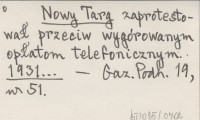 Nowy Targ zaprotesto-
wał przeciw wygórowanym
opłatom telefonicznym.
1931... — Gaz. Podh. 19,
nr 51.